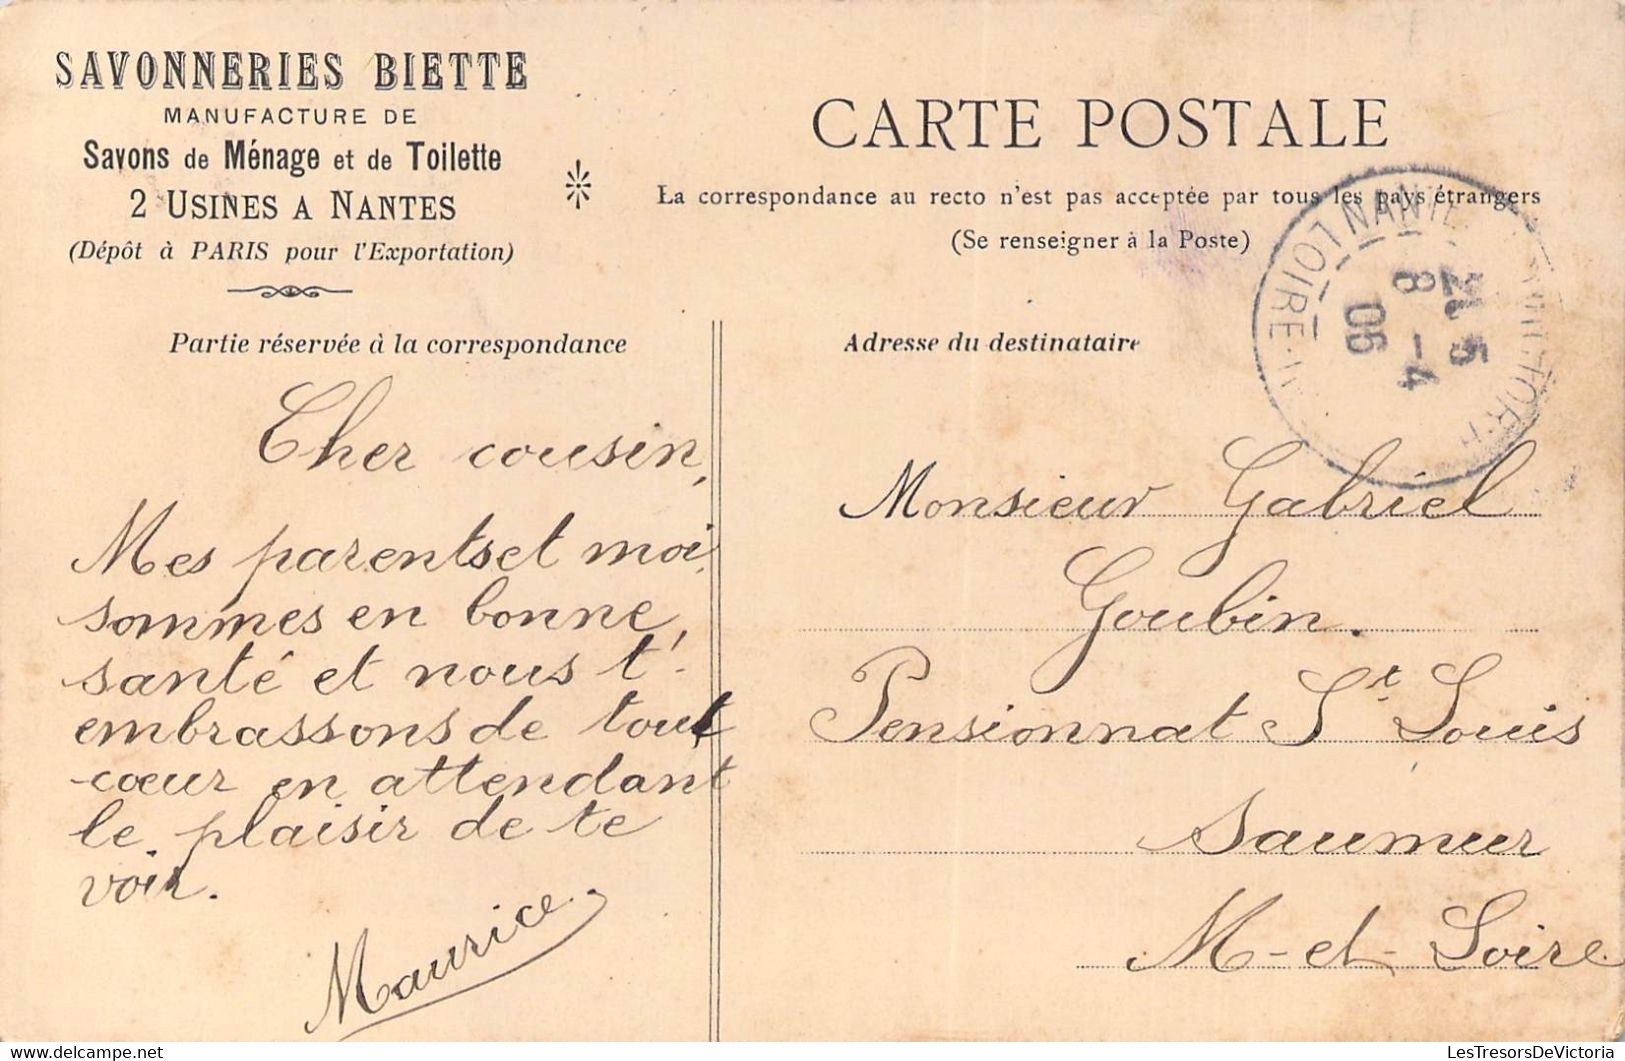 SAVONNERIES BIETTE
MANUFACTURE DE
Savons de Ménage et de Toilette
2 USINES A NANTES
(Dépôt à PARIS pour l'Exportation)
CARTE POSTALE
La correspondance au recto n'est pas acceptée par tous les pays étrangers
(Se renseigner à la Poste)
Partie réservée à la correspondance
Cher cousin,
Mes parents et moi
sommes en bonne
santé et nous t'-
embrassons de tout
cœur en attendant
le plaisir de te
voir.
Maurice
Adresse du destinataire
Monsieur Gabriel
Goubin.
Pensionnat St Louis
Saumur
M-et-Loire
NANTES
LOIRE
8 - 4
06
LesTresorsDeVictoria